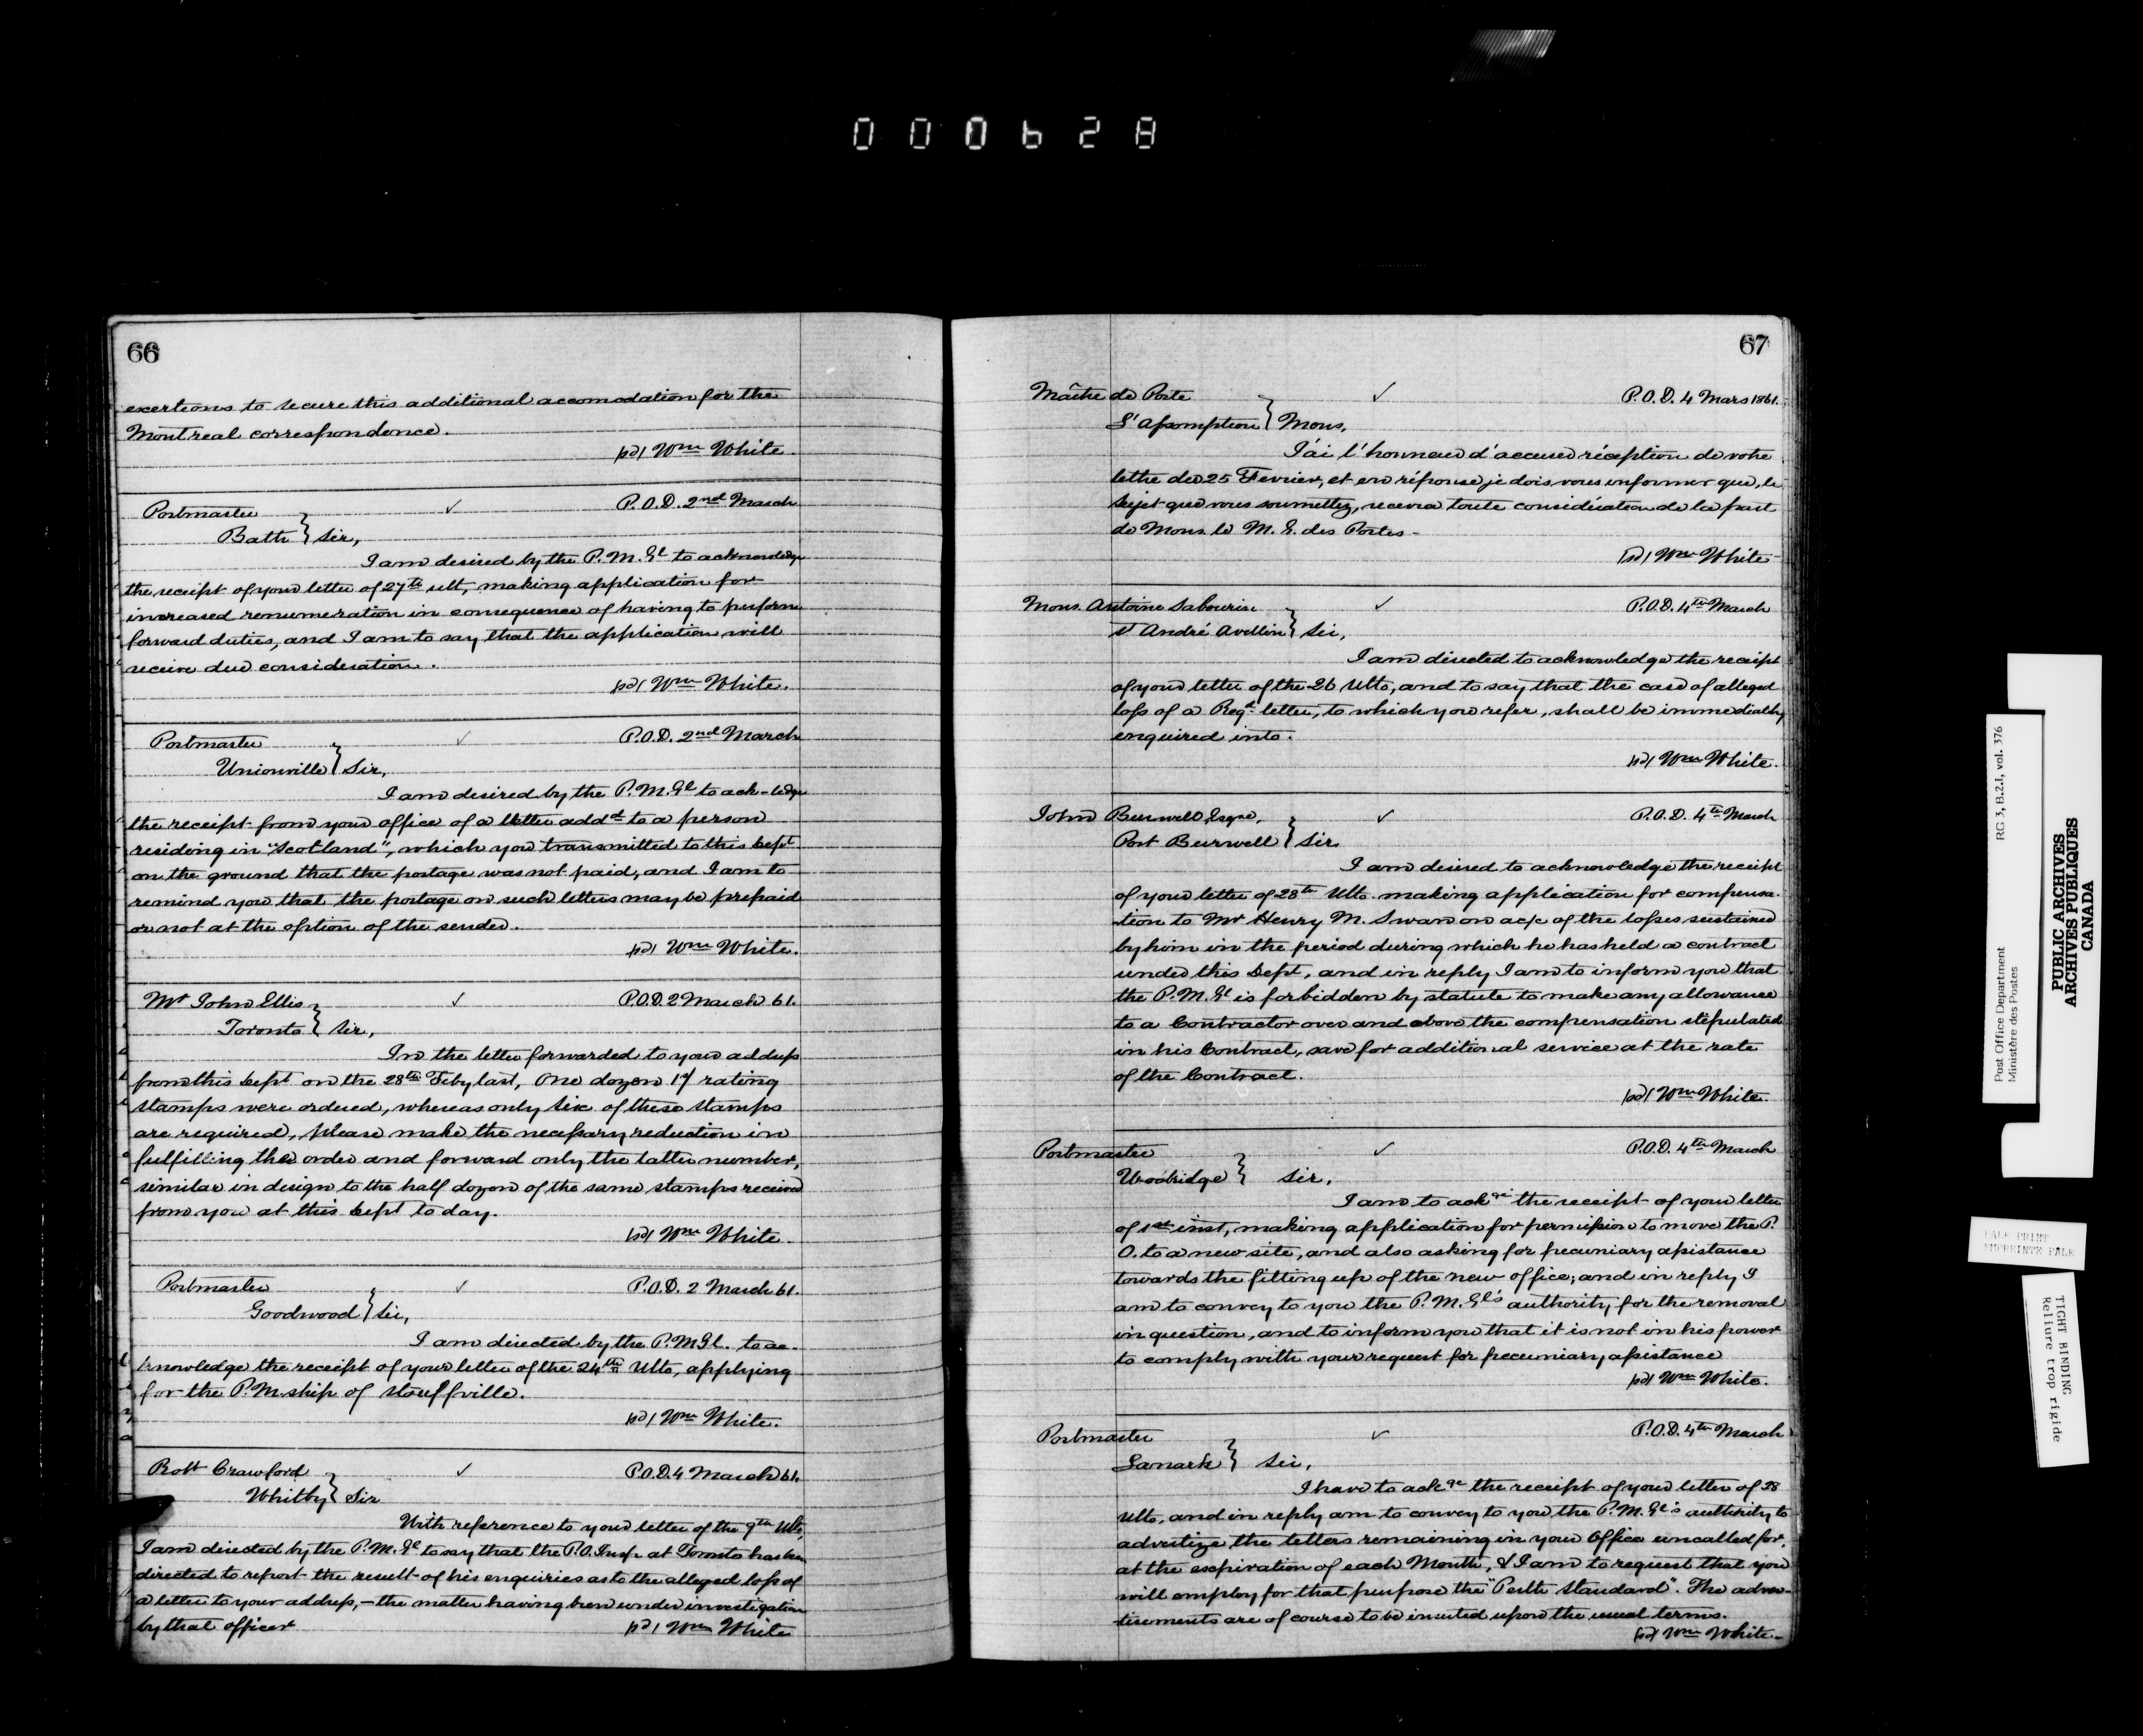 000628
66
exertions to secure this additional accomodation for the
Montreal correspondence.
sd/ Wm White.
Postmaster P.O.D. 2nd March
Bath } Sir,
I am desired by the P.M.Gl to acknowledge
the receipt of your letter of 27th ult, making application for
increased renumeration in consequence of having to perform
forward duties, and I am to say that the application will
receive due consideration.
sd/ Wm White.
Postmaster P.O.D. 2nd March
Unionville } Sir,
I am desired by the P.M.Gl to ack-ledge
the receipt from your office of a letter addd to a person
residing in "Scotland", which you transmitted to this Dept
on the ground that the postage was not paid, and I am to
remind you that the postage on such letters may be prepaid
or not at the option of the sender.
sd/ Wm White.
Mr John Ellis P.O.D. 2 March 61.
Toronto } Sir,
In the letter forwarded to your address
from this Dept on the 28th Feby last, One dozen 1d/ rating
stamps were ordered, whereas only six of these stamps
are required, please make the necessary reduction in
fulfilling the order and forward only the latter number,
similar in design to the half dozen of the same stamps received
from you at this Dept to day.
sd/ Wm White.
Postmaster P.O.D. 2 March 61.
Goodwood } Sir,
I am directed by the P.M.Gl. to ac-
knowledge the receipt of your letter of the 24th Ulto, applying
for the P.M.ship of Stouffville.
sd/ Wm White.
Robt Crawford P.O.D. 4 March 61.
Whitby } Sir
With reference to your letter of the 9th Ulto,
I am directed by the P.M.Gl to say that the P.O. Insp. at Toronto has been
directed to report the result of his enquiries as to the alleged loss of
a letter to your address, – the matter having been under investigation
by that officer
sd/ Wm White
67
Maître de Poste P.O.D. 4 Mars 1861.
L'Assomption } Mons,
J'ai l'honneur d'accuser réception de votre
lettre du 25 Fevrier, et en réponse je dois vous informer que, le
sujet que vous soumettez, recevra toute considération de la part
de Mons. le M. G. des Postes -
sd/ Wm White
Mons. Antoine Sabourin P.O.D. 4th March
St André Avellin } Sir,
I am directed to acknowledge the receipt
of your letter of the 26 Ulto, and to say that the case of alleged
loss of a Regd letter, to which you refer, shall be immediately
enquired into.
sd/ Wm White.
John Burwell Esqre, P.O.D. 4th March
Port Burwell } Sir
I am desired to acknowledge the receipt
of your letter of 28th Ulto. making application for compensa-
tion to Mr Henry M. Swan on a/c of the losses sustained
by him in the period during which he has held a contract
under this Dept, and in reply I am to inform you that
the P.M.Gl is forbidden by statute to make any allowance
to a Contractor over and above the compensation stipulated
in his Contract, save for additional service at the rate
of the Contract.
sd/ Wm White.
Postmaster P.O.D. 4th March
Woobridge } Sir,
I am to ackge the receipt of your letter
of 1st inst, making application for permission to move the P.
O. to a new site, and also asking for pecuniary assistance
towards the fitting up of the new office; and in reply I
am to convey to you the P.M.Gl's authority for the removal
in question, and to inform you that it is not in his power
to comply with your request for pecuniary assistance
sd/ Wm White.
Postmaster P.O.D. 4th March
Lanark } Sir,
I have to ackge the receipt of your letter of 28
Ulto, and in reply am to convey to you the P.M.Gl's authority to
advertize the letters remaining in your Office uncalled for,
at the expiration of each Month, & I am to request that you
will employ for that purpose the "Perth Standard". The adver-
tisements are of course to be inserted upon the usual terms.
sd/ Wm White -
Post Office Department RG 3, B.2.1, vol. 376
Ministère des Postes
PUBLIC ARCHIVES
ARCHIVES PUBLIQUES
CANADA
PALE PRINT
EMPREINTE PALE
TIGHT BINDING
Reliure trop rigide